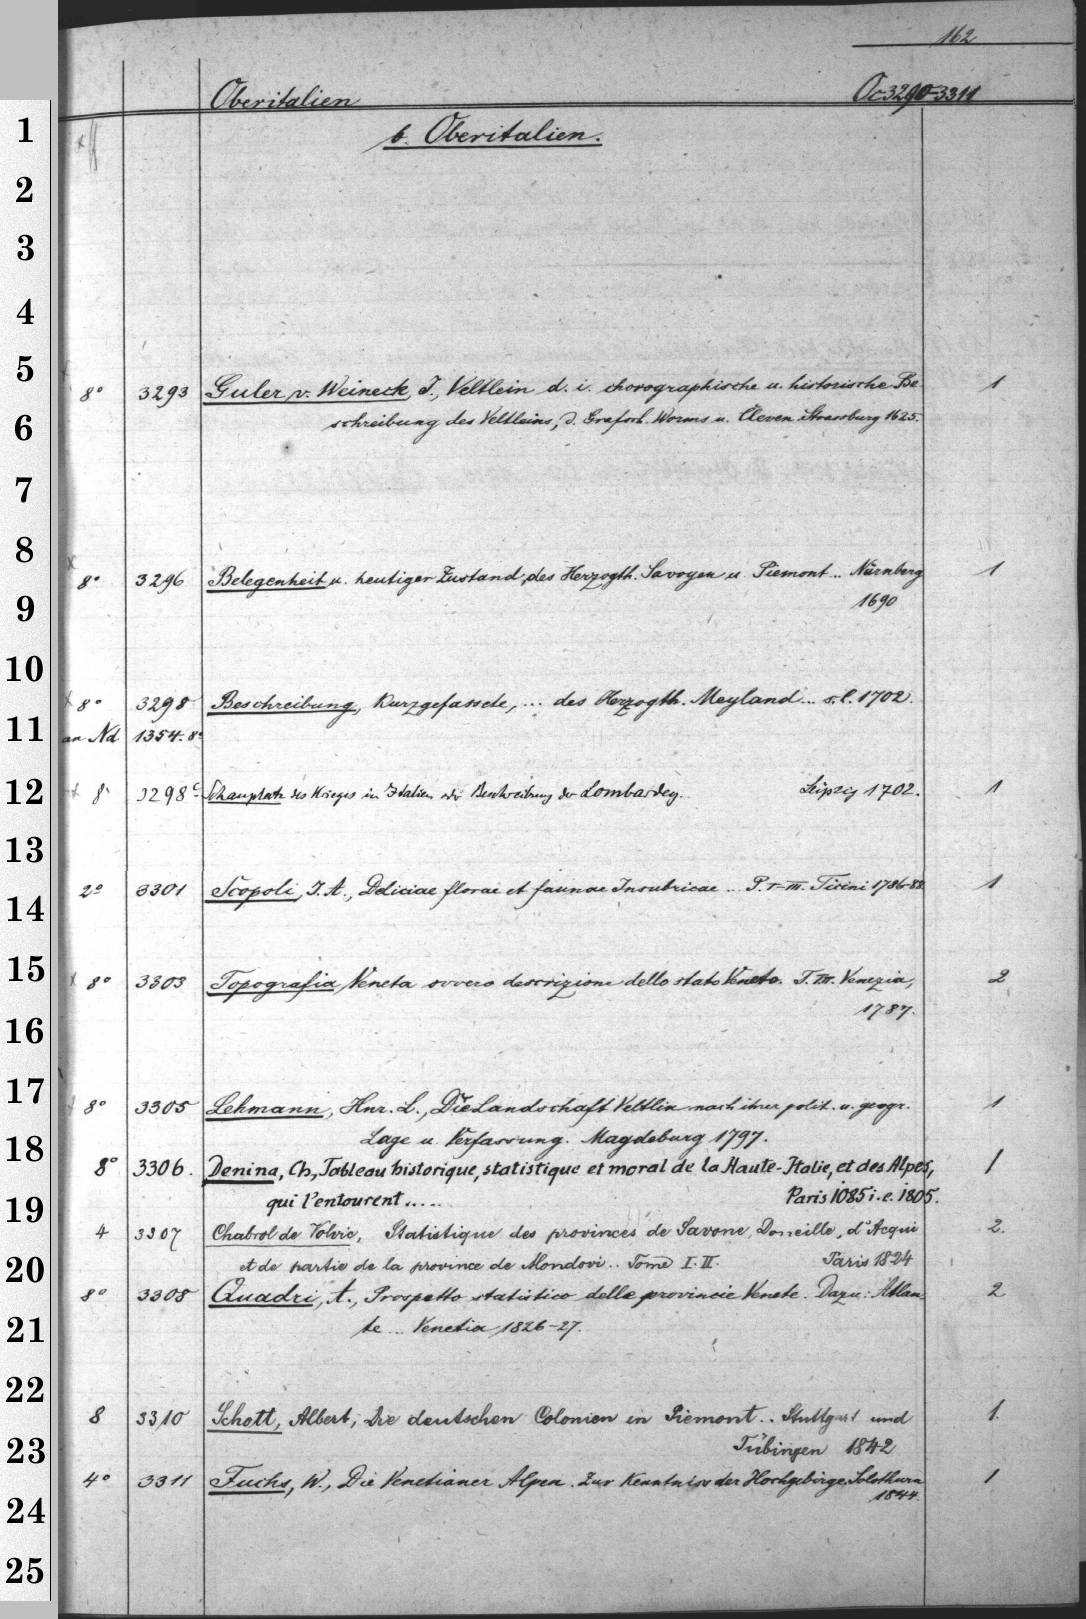 162
Oberitalien Oc 3290-3311
1
b. Oberitalien.
2
3
4
5
8° 3293 Guler v. Weineck, J., Veltlein d. i. chorographische u. historische Be- 1
6 schreibung des Veltleins, d. Grafsch. Worms u. Cleven. Strassburg 1625.
7
8
x 8° 3296 Belegenheit u. heutiger Zustand des Herzogth. Savoyen u. Piemont... Nürnberg 1
9 1690
10
x 8° 3298 Beschreibung, Kurzgefasste, ... des Herzogth. Meyland... s. l. 1702.
11 an Nd 1354. 8°
12 x 8° 3298c Schauplatz des Krieges in Italien oder Beschreibung der Lombardey. Leipzig 1702. 1
13
2° 3301 Scopoli, J. A., Deliciae florae et faunae Insubricae... P. I-III. Ticini 1786-88. 1
14
15 x 8° 3303 Topografia Veneta ovvero descrizione dello stato Veneto. T. III. Venezia, 2
16 1787.
17
8° 3305 Lehmann, Hnr. L., Die Landschaft Veltlin nach ihrer polit. u. geogr. 1
18 Lage u. Verfassung. Magdeburg 1797.
8° 3306. Denina, Ch., Tableau historique, statistique et moral de la Haute-Italie, et des Alpes, 1
19 qui l'entourent..... Paris 1085 i. e. 1805.
4 3307 Chabrol de Volvic, Statistique des provinces de Savone, Doneille, d'Acqui 2.
20 et de partie de la province de Mondovi.. Tome I. II. Paris 1824
8° 3308 Quadri, A., Prospetto statistico delle provincie Venete. Dazu: Atlan- 2
21 te... Venetia 1826-27.
22
8 3310 Schott, Albert, Die deutschen Colonien in Piemont.. Stuttgart und 1.
23 Tübingen 1842
4° 3311 Fuchs, W., Die Venetianer Alpen. Zur Kenntniss der Hochgebirge. Solothurn 1
24 1844.
25